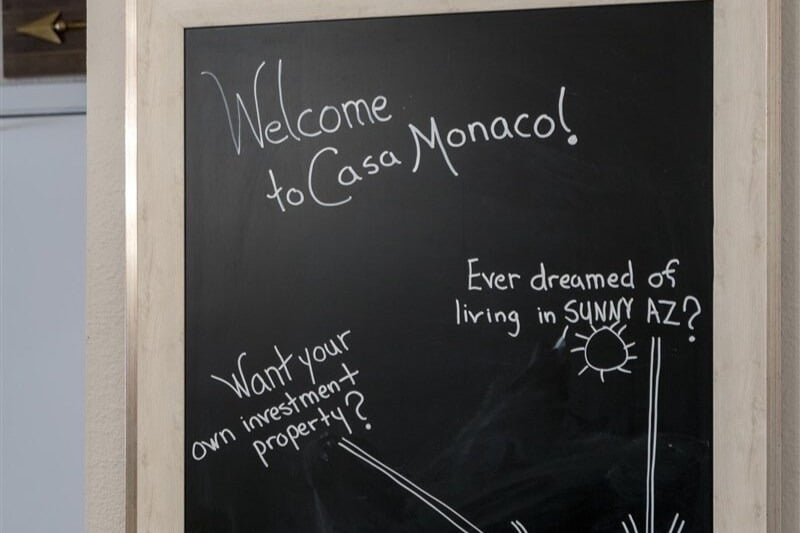 Welcome
to Casa Monaco!
Ever dreamed of
living in SUNNY AZ?
Want your
own investment
property?